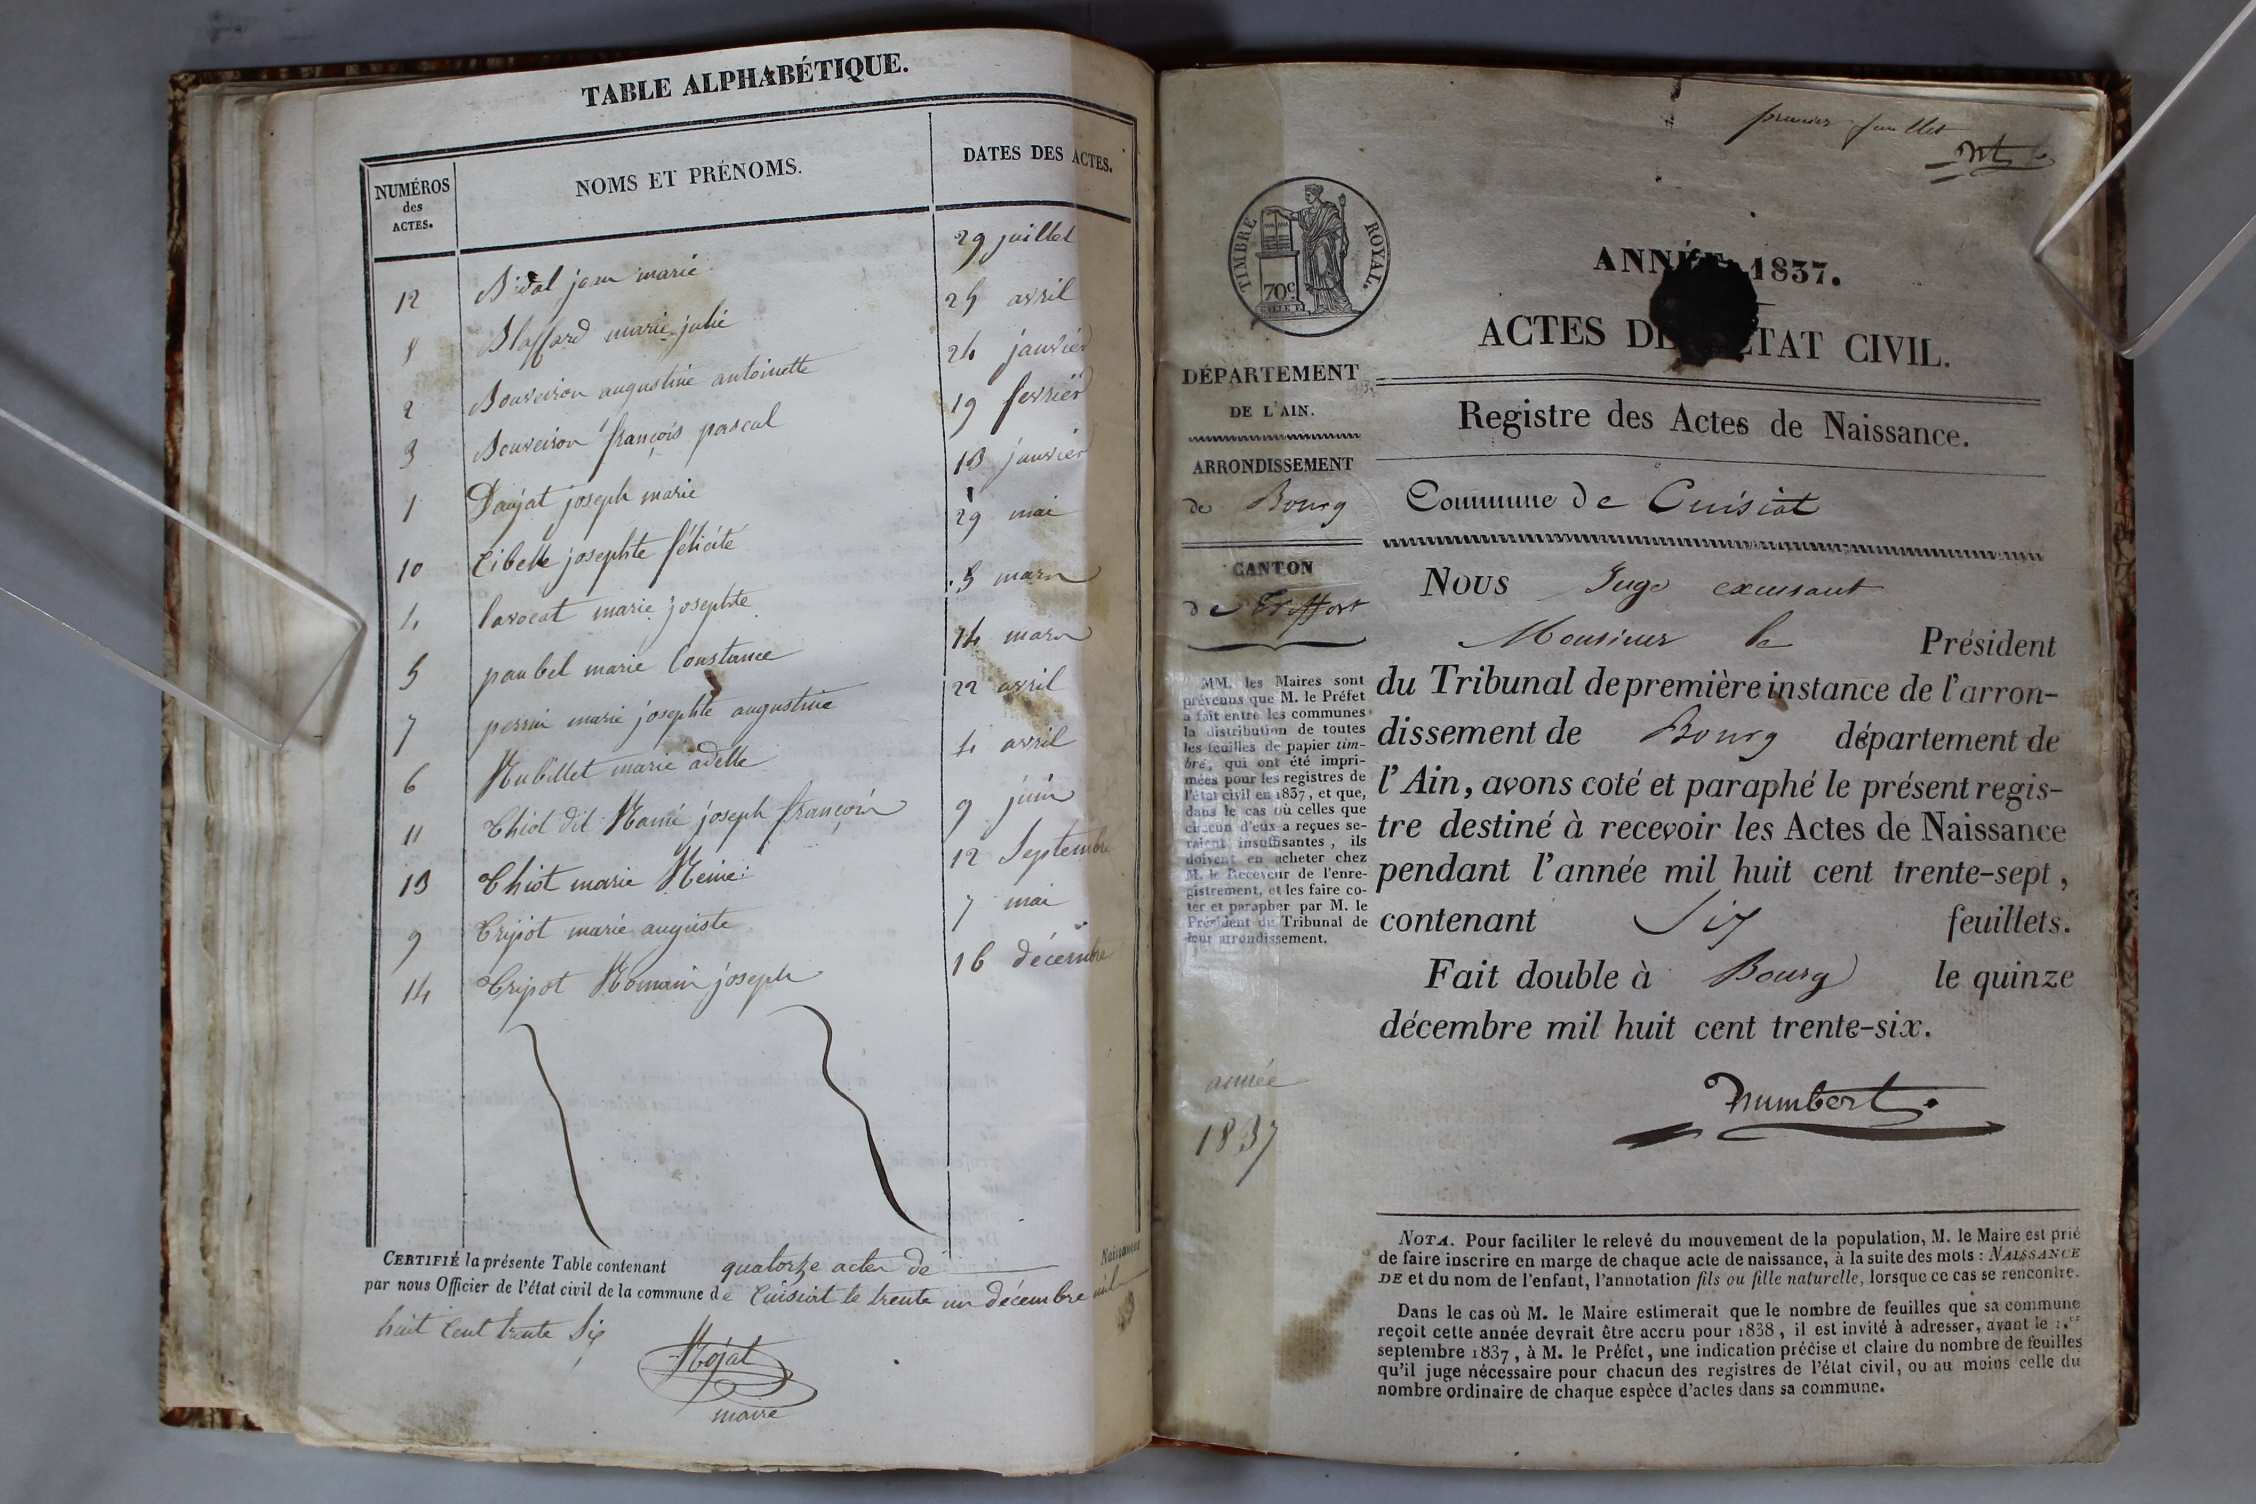 TABLE ALPHABÉTIQUE.
NUMÉROS
des
ACTES.
NOMS ET PRÉNOMS.
DATES DES ACTES.
12 Bidal jean marie 29 juillet
8 Blaffard marie julie 25 avril
2 Bouveiron augustine antoinette 24 janvier
3 Bouveiron françois pascal 19 fevrier
1 Daujat joseph marie 13 janvier
10 Cibelle josephte félicité 29 mai
4 lavocat marie josephte 5 mars
5 paubel marie Constance 14 mars
7 perrin marie josephte augustine 22 avril
6 Rubillet marie adelle 4 avril
11 Thiot dit Ramé joseph françois 9 juin
13 Thiot marie Reine 12 Septembre
9 Tripot marie auguste 7 mai
14 Tripot Romain joseph 16 décembre
CERTIFIÉ la présente Table contenant quatorze actes de Naissance
par nous Officier de l'état civil de la commune de Cuisiat le trente un décembre mil
huit Cent trente Six
Rojat
maire
premier feuillet
TIMBRE ROYAL.
70c
ANNÉE 1837.
ACTES DE L'ÉTAT CIVIL.
DÉPARTEMENT
DE L'AIN.
ARRONDISSEMENT
de Bourg
CANTON
de Treffort
MM. les Maires sont
prévenus que M. le Préfet
a fait entre les communes
la distribution de toutes
les feuilles de papier tim-
bré, qui ont été impri-
mées pour les registres de
l'état civil en 1837, et que,
dans le cas où celles que
chacun d'eux a reçues se-
raient insuffisantes, ils
doivent en acheter chez
M. le Receveur de l'enre-
gistrement, et les faire co-
ter et parapher par M. le
Président du Tribunal de
leur arrondissement.
année
1837
Registre des Actes de Naissance.
Commune de Cuisiat
NOUS Juge excusant
Monsieur le Président
du Tribunal de première instance de l'arron-
dissement de Bourg département de
l'Ain, avons coté et paraphé le présent regis-
tre destiné à recevoir les Actes de Naissance
pendant l'année mil huit cent trente-sept,
contenant Six feuillets.
Fait double à Bourg le quinze
décembre mil huit cent trente-six.
humbert.
NOTA. Pour faciliter le relevé du mouvement de la population, M. le Maire est prié
de faire inscrire en marge de chaque acte de naissance, à la suite des mots : NAISSANCE
DE et du nom de l'enfant, l'annotation fils ou fille naturelle, lorsque ce cas se rencontre.
Dans le cas où M. le Maire estimerait que le nombre de feuilles que sa commune
reçoit cette année devrait être accru pour 1838, il est invité à adresser, avant le 1.er
septembre 1837, à M. le Préfet, une indication précise et claire du nombre de feuilles
qu'il juge nécessaire pour chacun des registres de l'état civil, ou au moins celle du
nombre ordinaire de chaque espèce d'actes dans sa commune.